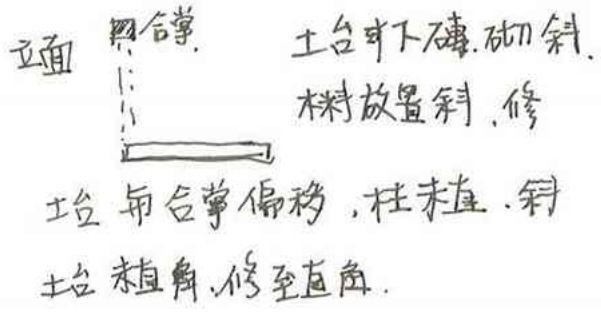 立面
合掌.
土台下磚.砌斜.
木料放置斜.修
土台與合掌偏移,柱未直.斜
土台未直角.修至直角.